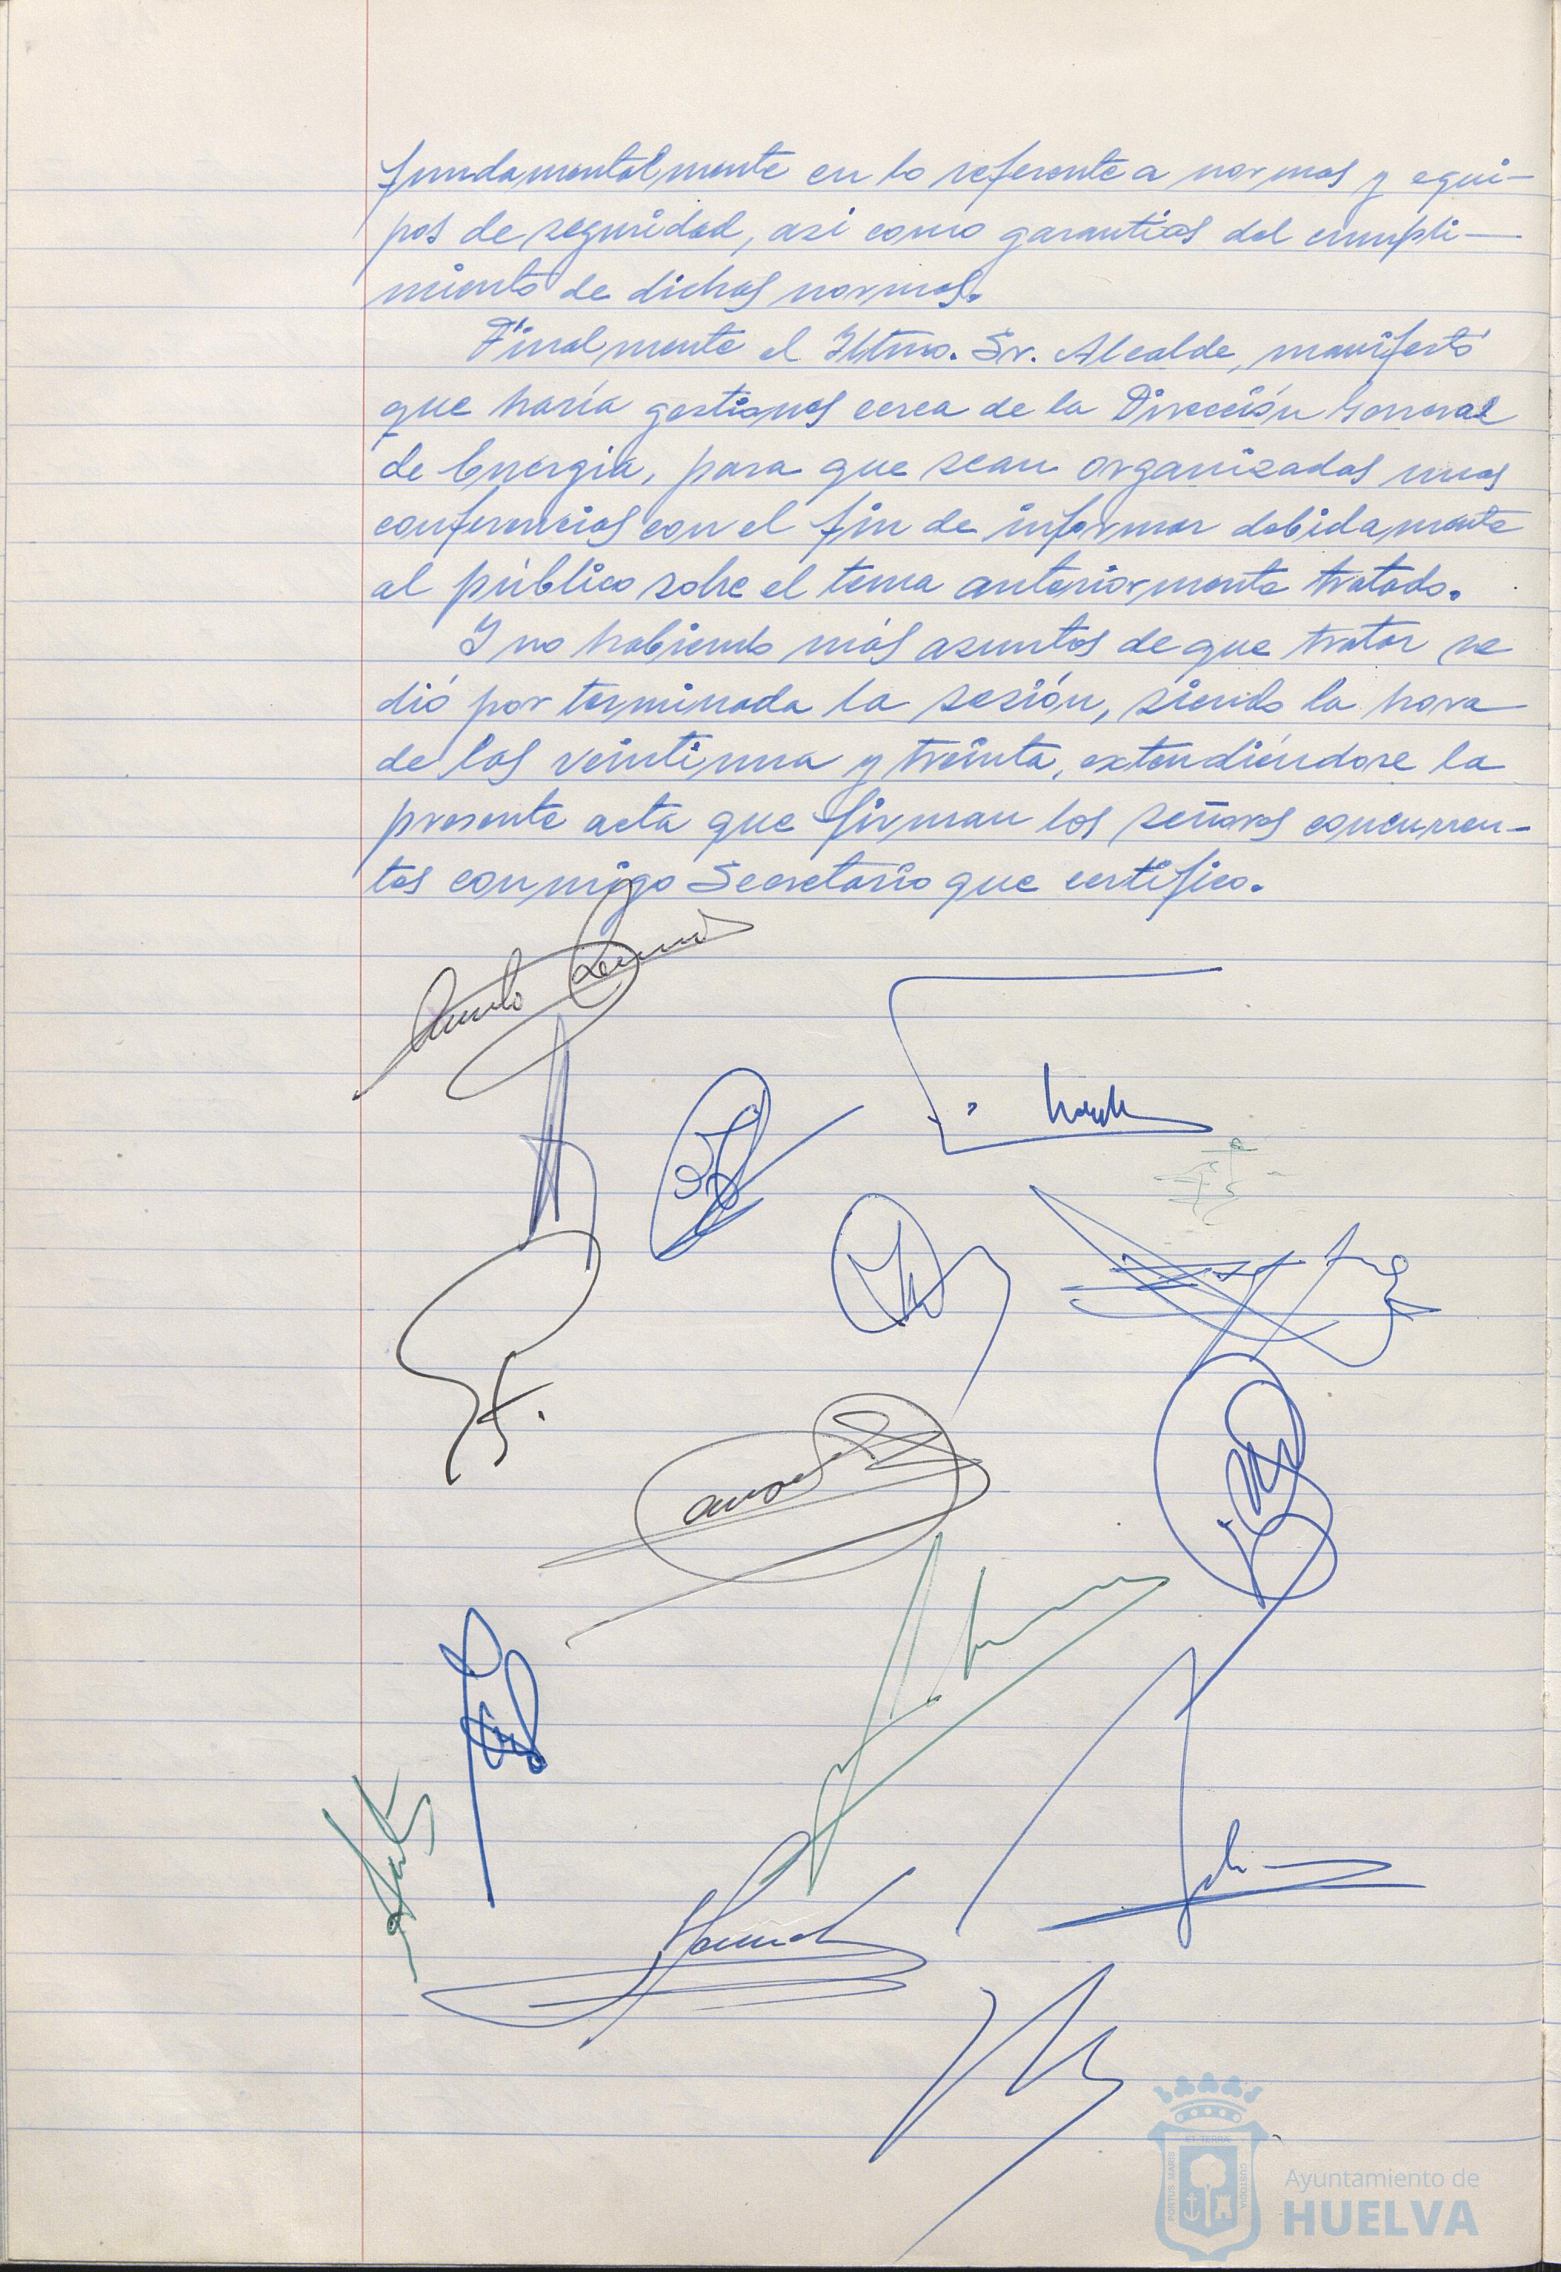 fundamentalmente en lo referente a normas y equi-
pos de seguridad, asi como garantias del cumpli-
miento de dichas normas.
Finalmente el Iltmo. Sr. Alcalde, manifestó
que haría gestiones cerca de la Dirección General
de Energia, para que sean organizadas unas
conferencias con el fin de informar debidamente
al público sobre el tema anteriormente tratado.
Y no habiendo más asuntos de que tratar se
dió por terminada la sesión, siendo la hora
de las veintiuna y treinta, extendiéndose la
presente acta que firman los señores concurren-
tes conmigo Secretario que certifico.
PORTUS MARIS
ET TERRÆ
CUSTODIA
Ayuntamiento de
HUELVA